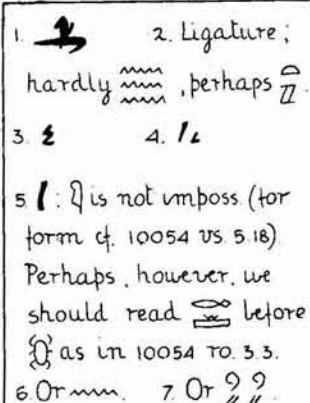 1. 2. Ligature;
hardly 𓈗, perhaps 𓏏𓊪.
3. 4.
5 : is not imposs. (for
form cf. 10054 vs. 5.18).
Perhaps, however, we
should read before
as in 10054 ro. 3.3.
6. Or 𓈖. 7. Or 𓏲𓏲